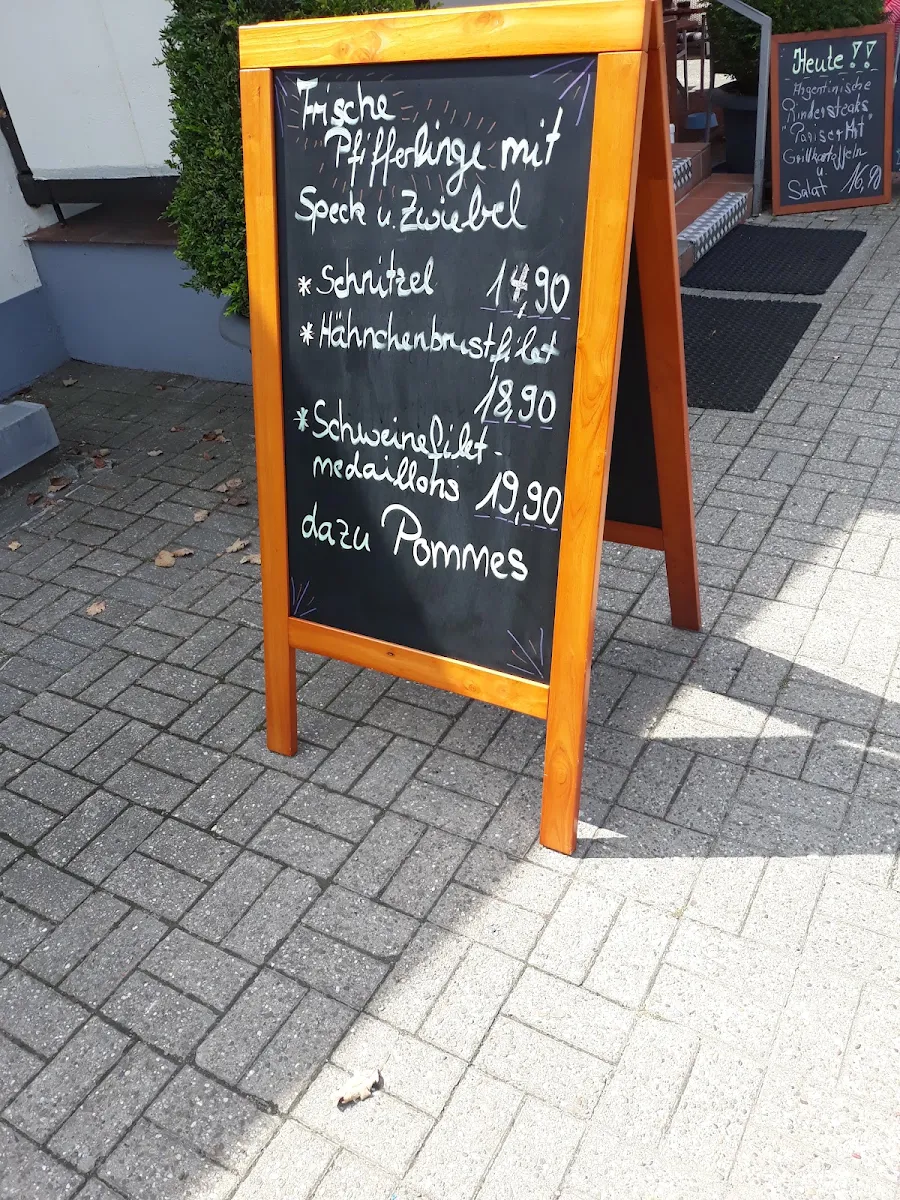 Frische
Pfifferlinge mit
Speck u. Zwiebel
* Schnitzel 14,90
* Hähnchenbrustfilet
18,90
* Schweinefilet-
medaillons 19,90
dazu Pommes
Heute !!
Argentinische
Rindersteaks
"Pariser Art"
Grillkartoffeln
u.
Salat 16,90